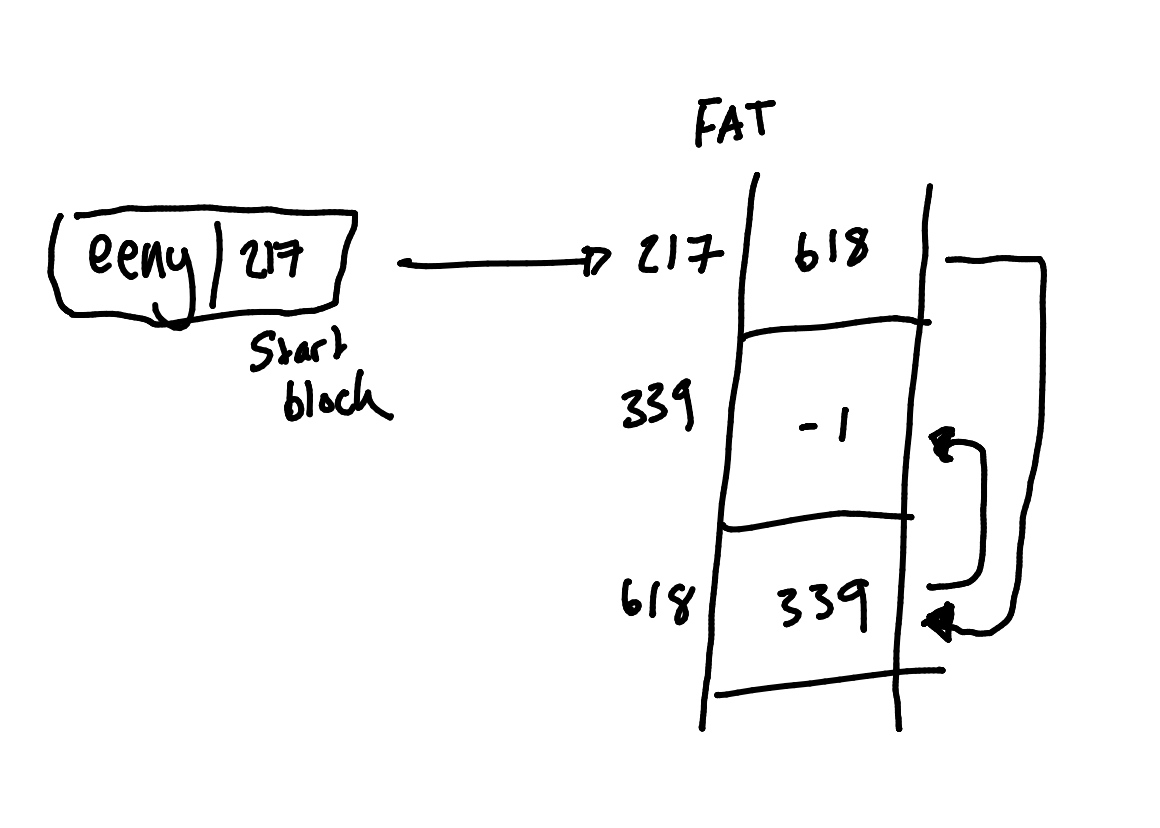 FAT
eeny 217
Start
block
217 618
339 -1
618 339